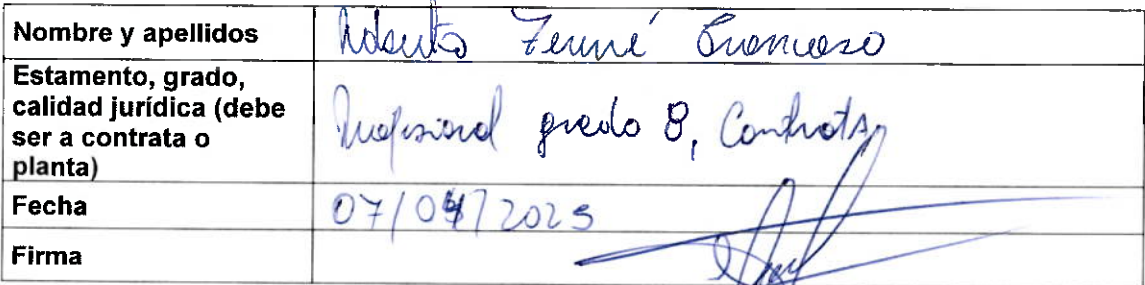 Nombre y apellidos
Estamento, grado,
calidad jurídica (debe
ser a contrata o
planta)
Profesional grado 8, Contrata
Fecha
07/04/2025
Firma